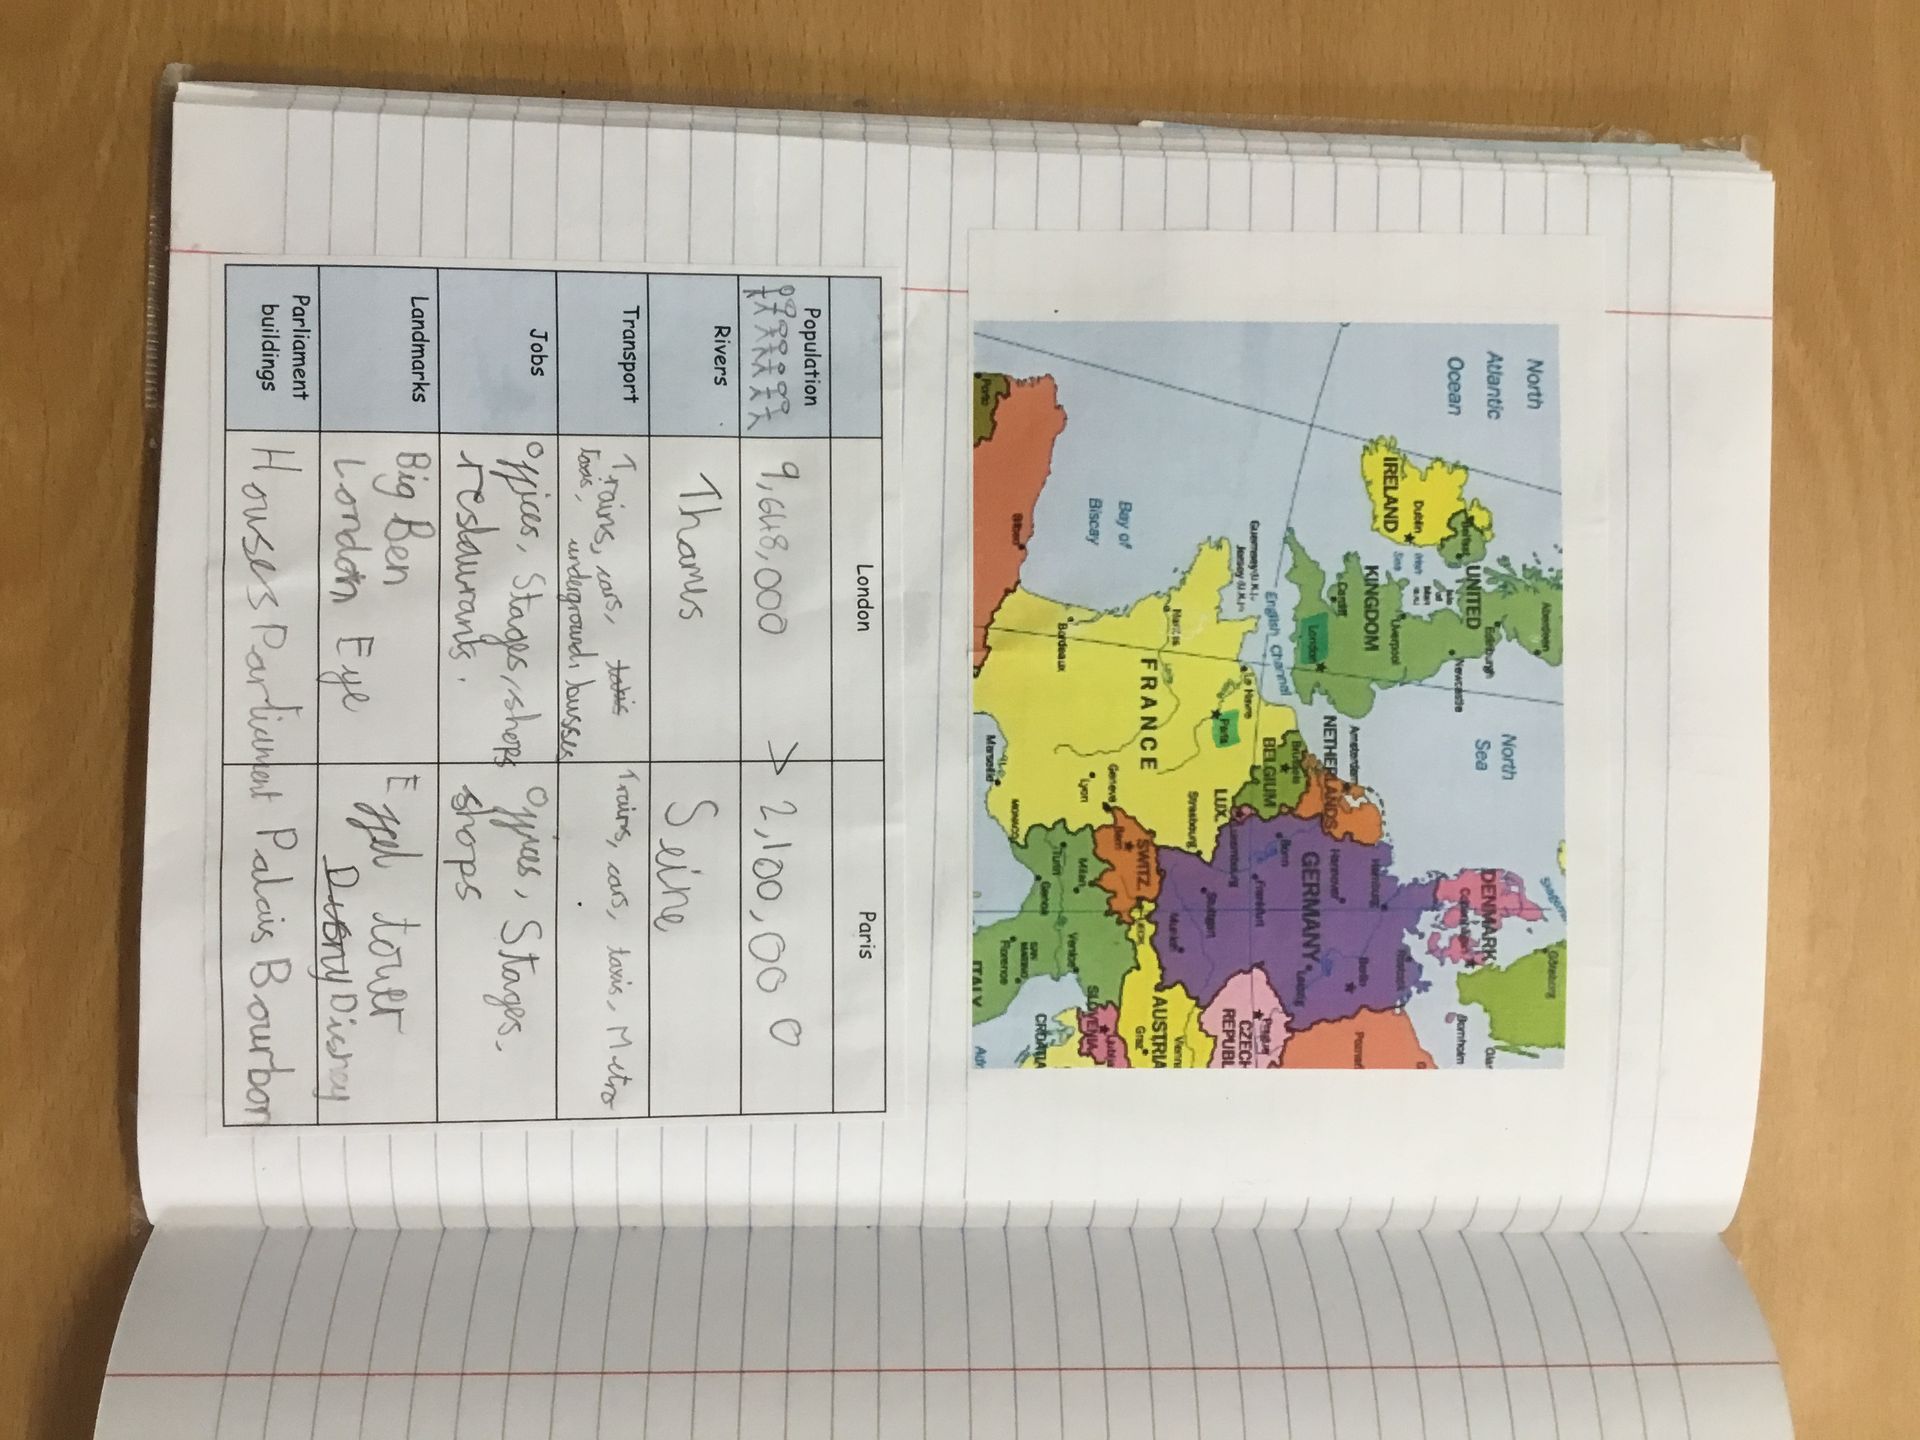 North
Atlantic
Ocean
North
Sea
Aberdeen
Edinburgh
Newcastle
UNITED
KINGDOM
IRELAND
Dublin
Irish
Sea
Liverpool
Cardiff
London
English Channel
Guernsey (U.K.)
Jersey (U.K.)
Bay of
Biscay
DENMARK
Göteborg
Bornholm
Hamburg
Rostock
Berlin
Hannover
Leipzig
GERMANY
Bonn
Frankfurt
Stuttgart
Munich
Amsterdam
NETHERLANDS
Brussels
BELGIUM
LUX.
Luxembourg
Le Havre
Paris
Nantes
FRANCE
Strasbourg
Bordeaux
Lyon
Geneva
Bern
SWITZ.
Marseille
MONACO
Turin
Milan
Genoa
Venice
Florence
SAN
MARINO
ITALY
Prague
CZECH
REPUBL
Vienna
AUSTRIA
Graz
SLOVENIA
CROATIA
Bilbao
Porto
London Paris
Population 9,648,000 > 2,100,000
Rivers Thames Seine
Transport Trains, cars, taxis, underground, busses Trains, cars, taxis, Metro
Jobs Offices, Stages, shops restaurants. Offices, Stages, shops
Landmarks Big Ben London Eye Effel tower Disney
Parliament buildings Houses Parliament Palais Bourbon